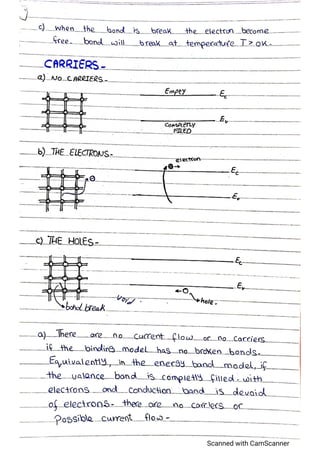 c) when the bond is break the electron become
free. bond will break at temperature T > 0K.
CARRIERS-
a) NO CARRIERS-
Empty
Ec
Ev
COMPLETLY
FILLED
b) THE ELECTRONS-
electron
Ec
Ev
c) THE HOLES-
Ec
Ev
void
hole.
bond break
a) There are no current flow or no carriers
if the binding model has no broken bonds.
Equivalently, in the energy band model, if
the valance bond is completly filled with
electrons and conduction band is devoid
of electrons. there are no carriers or
possible current flow-
Scanned with CamScanner